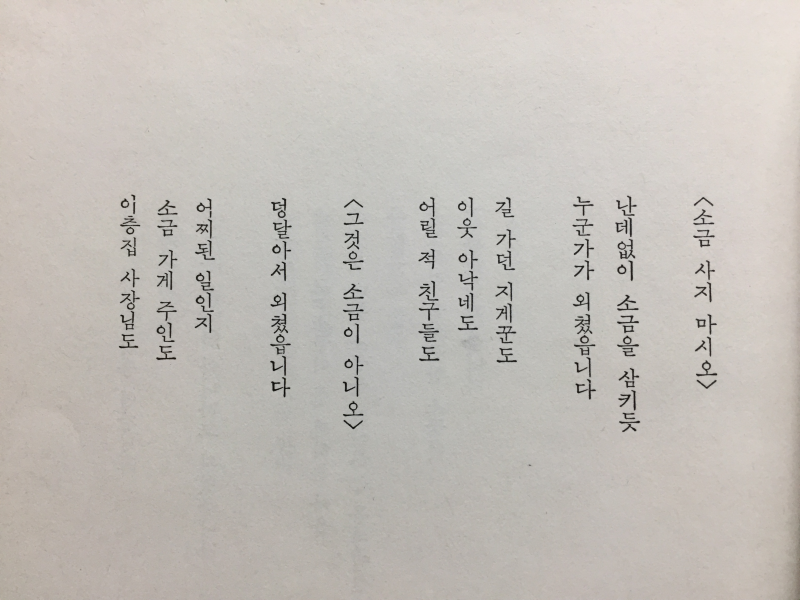 〈소금 사지 마시오〉
난데없이 소금을 삼키듯
누군가가 외쳤읍니다
길 가던 지게꾼도
이웃 아낙네도
어릴 적 친구들도
〈그것은 소금이 아니오〉
덩달아서 외쳤읍니다
어찌된 일인지
소금 가게 주인도
이층집 사장님도